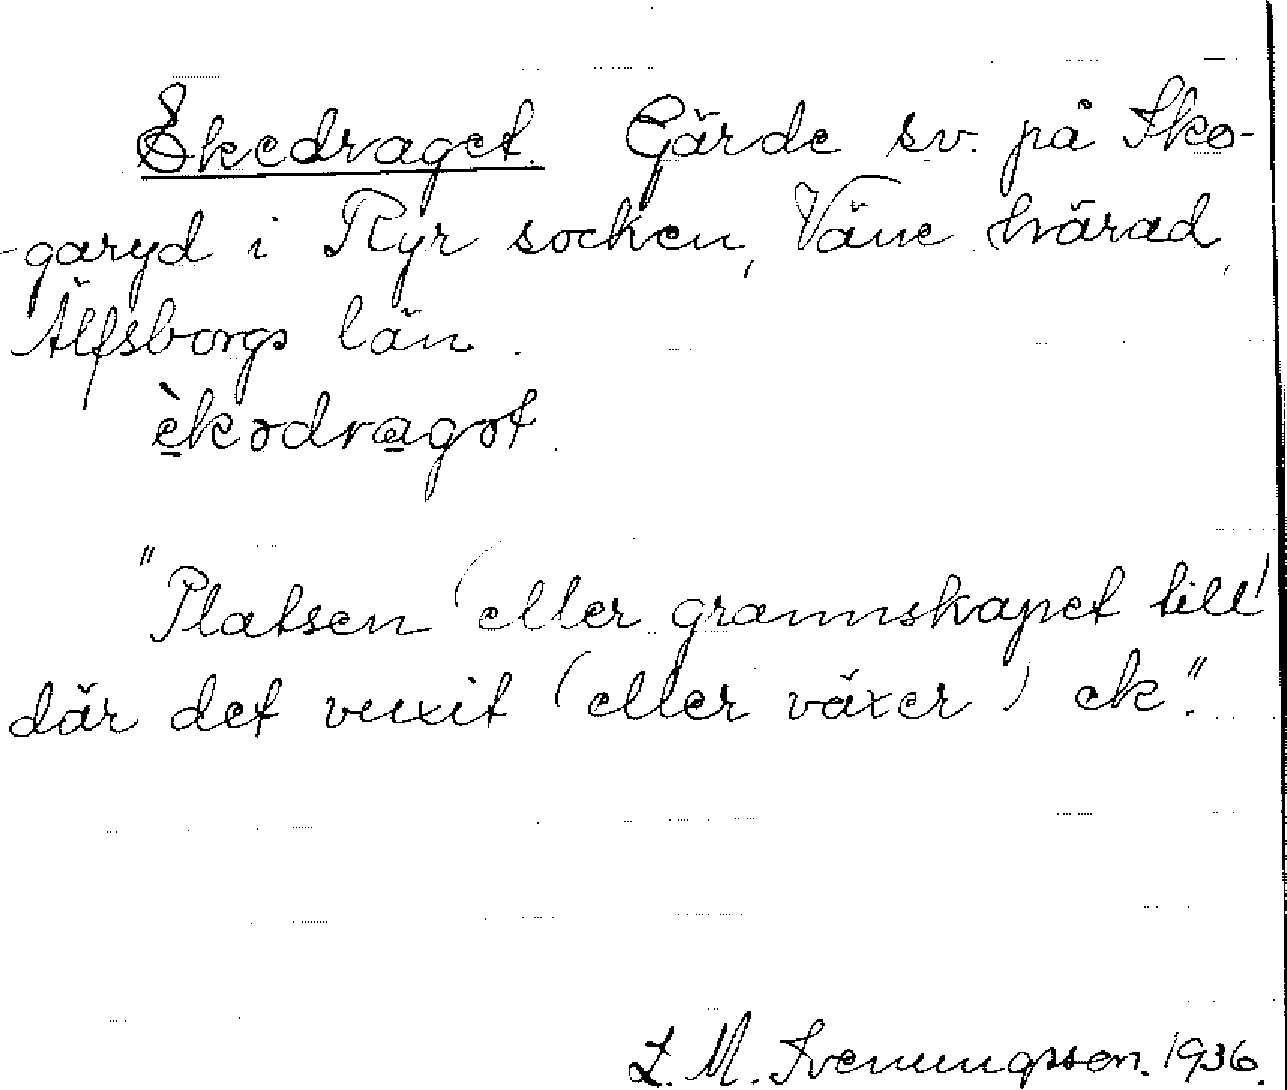 Ekedraget. Gärde sv. på Sko-
-garyd i Ryr socken, Väne härad,
Älfsborgs län.
èkədragət.
"Platsen (eller grannskapet till)
där det vuxit (eller växer) ek".
L. M. Svenungsson. 1936.